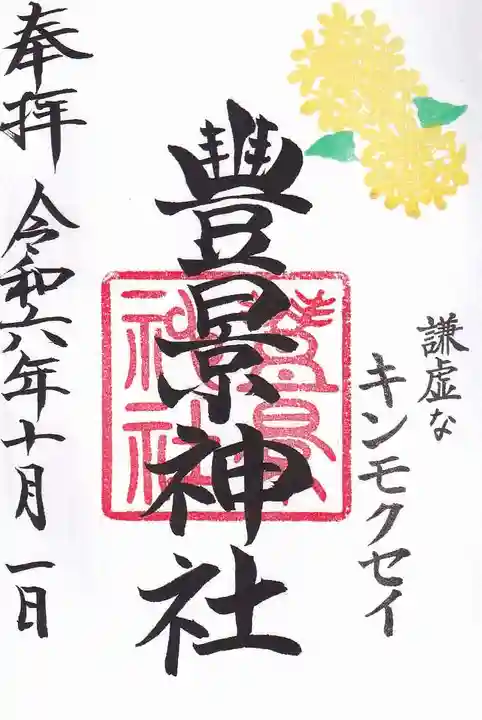 謙虚な
キンモクセイ
豊景神社
豐景神社
奉拝 令和六年十月一日